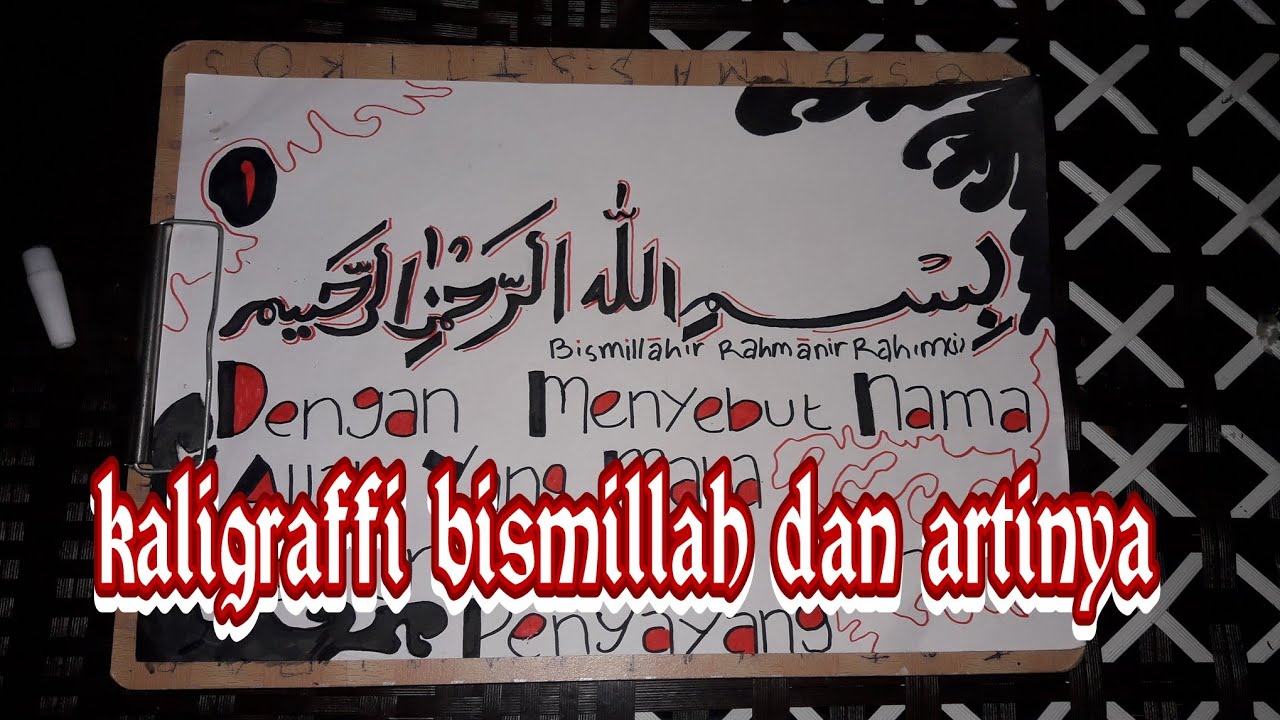 ١
بِسْمِ اللّٰه الرَّحْمٰنِ الرَّحِيم
Bismillāhir Rahmānir Rahim(i)
Dengan Menyebut Nama
Allah Yang Maha
kaligraffi bismillah dan artinya
Penyayang